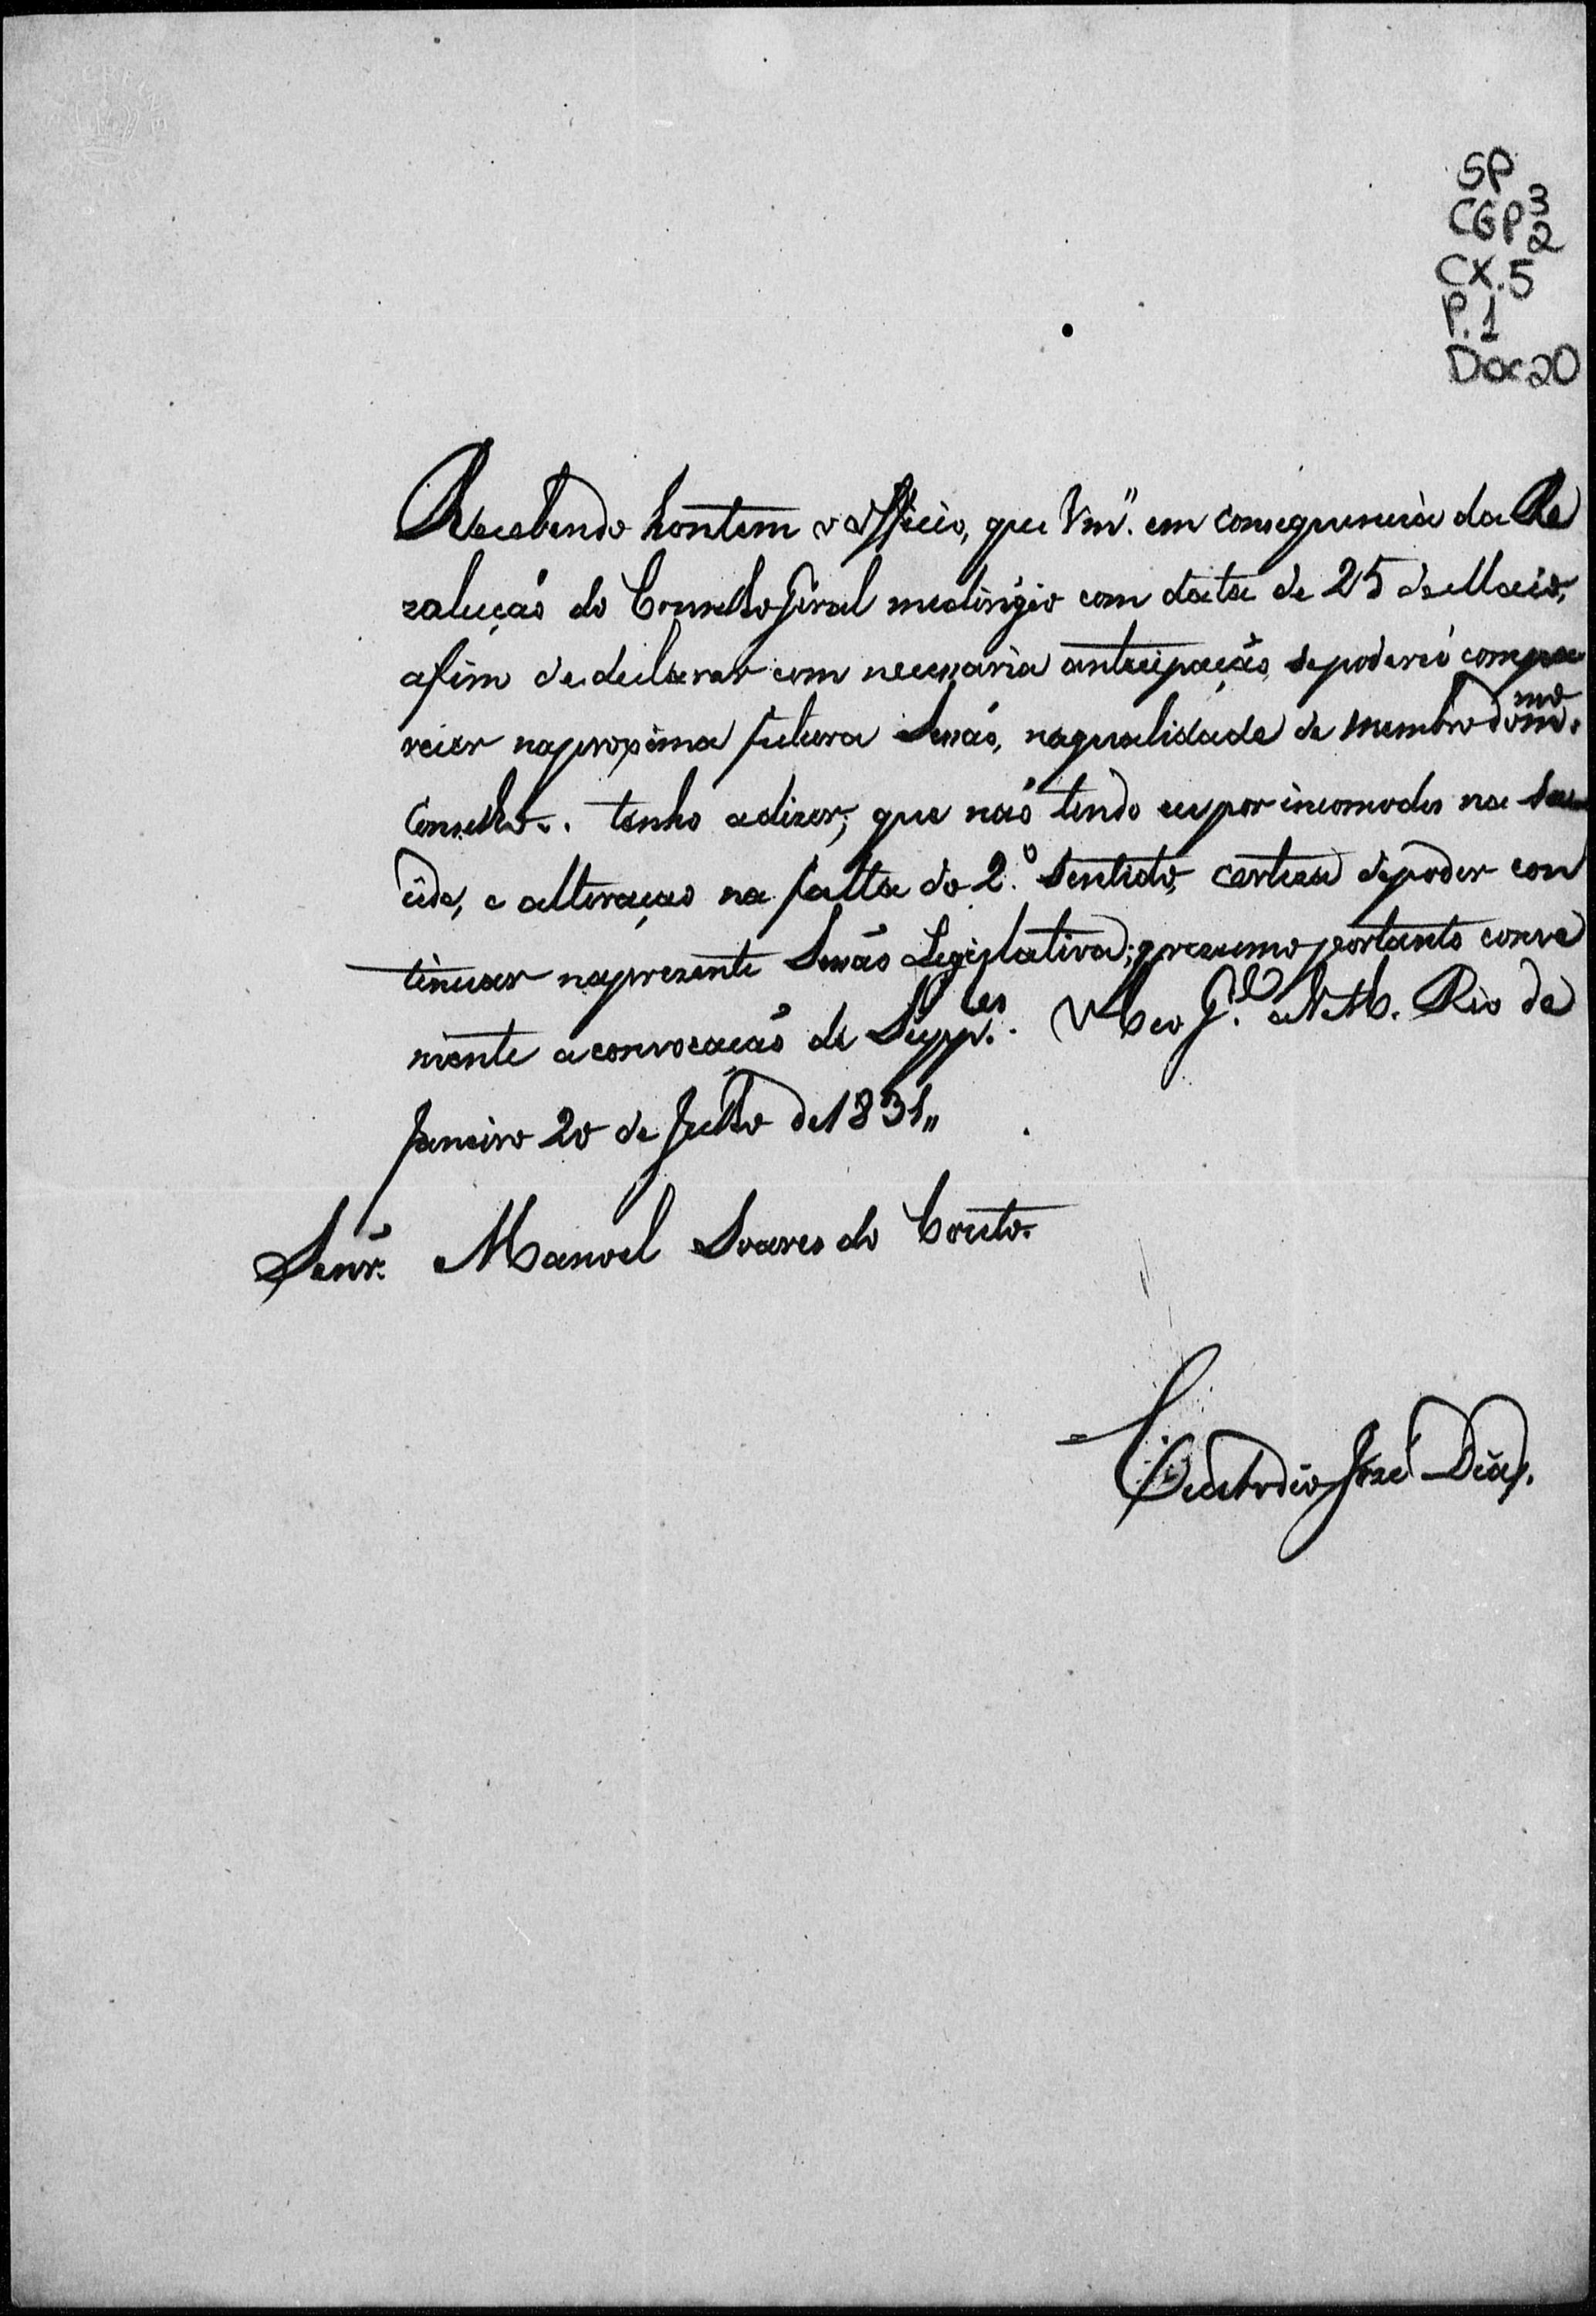 SP
CGP 3
2
CX.5
P.1
Doc 20
Recebendo hontem o Officio, que Vm.ce em consequencia da Re
zolução do Conselho Geral me dirigio com data de 25 de Maio,
afim de declarar com necessaria antecipação, se poderei compa
recer na proxima futura Sessão, na qualidade de membro do m.mo
Conselho: tenho a dizer; que não tendo eu por incomodos na sau
de, e alteração na falta do 2.º Sentido, certeza de poder con
tinuar na prezente Sessão Legislativa; prezumo portanto conve
niente a convocação de Supp.es. Rio de
Janeiro 20 de Julho de 1831,,
Senr. Manoel Soares do Couto.
Custodio José Dias.